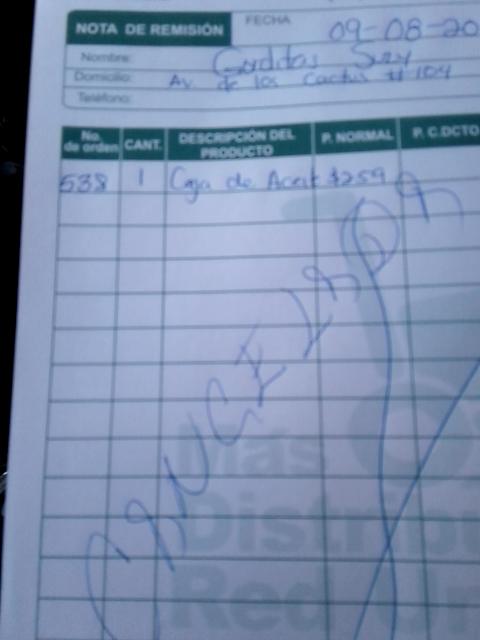 NOTA DE REMISIÓN FECHA 09-08-20
Nombre: Gorditas Suzy
Domicilio: Av de los Cactus # 104
Teléfono:
No. de orden CANT. DESCRIPCIÓN DEL PRODUCTO P. NORMAL P. C.DCTO
538 1 Caja de Aceite $259
Más
Distribu
Red Un